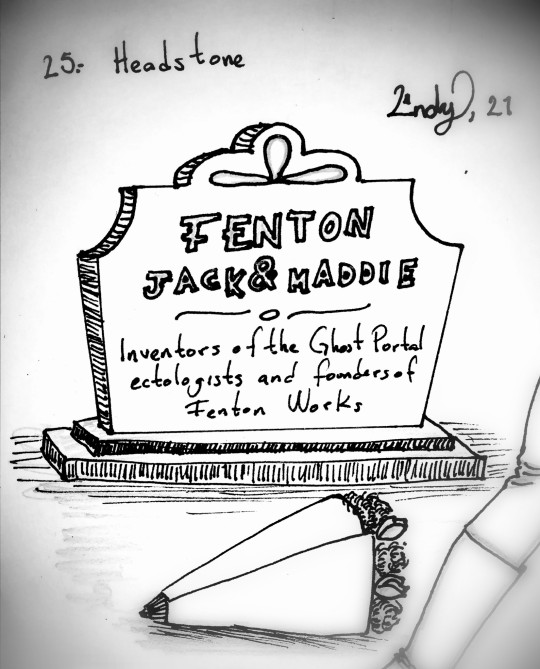 25.- Headstone
Zindy, 21
FENTON
JACK & MADDIE
Inventors of the Ghost Portal
ectologists and founders of
Fenton Works